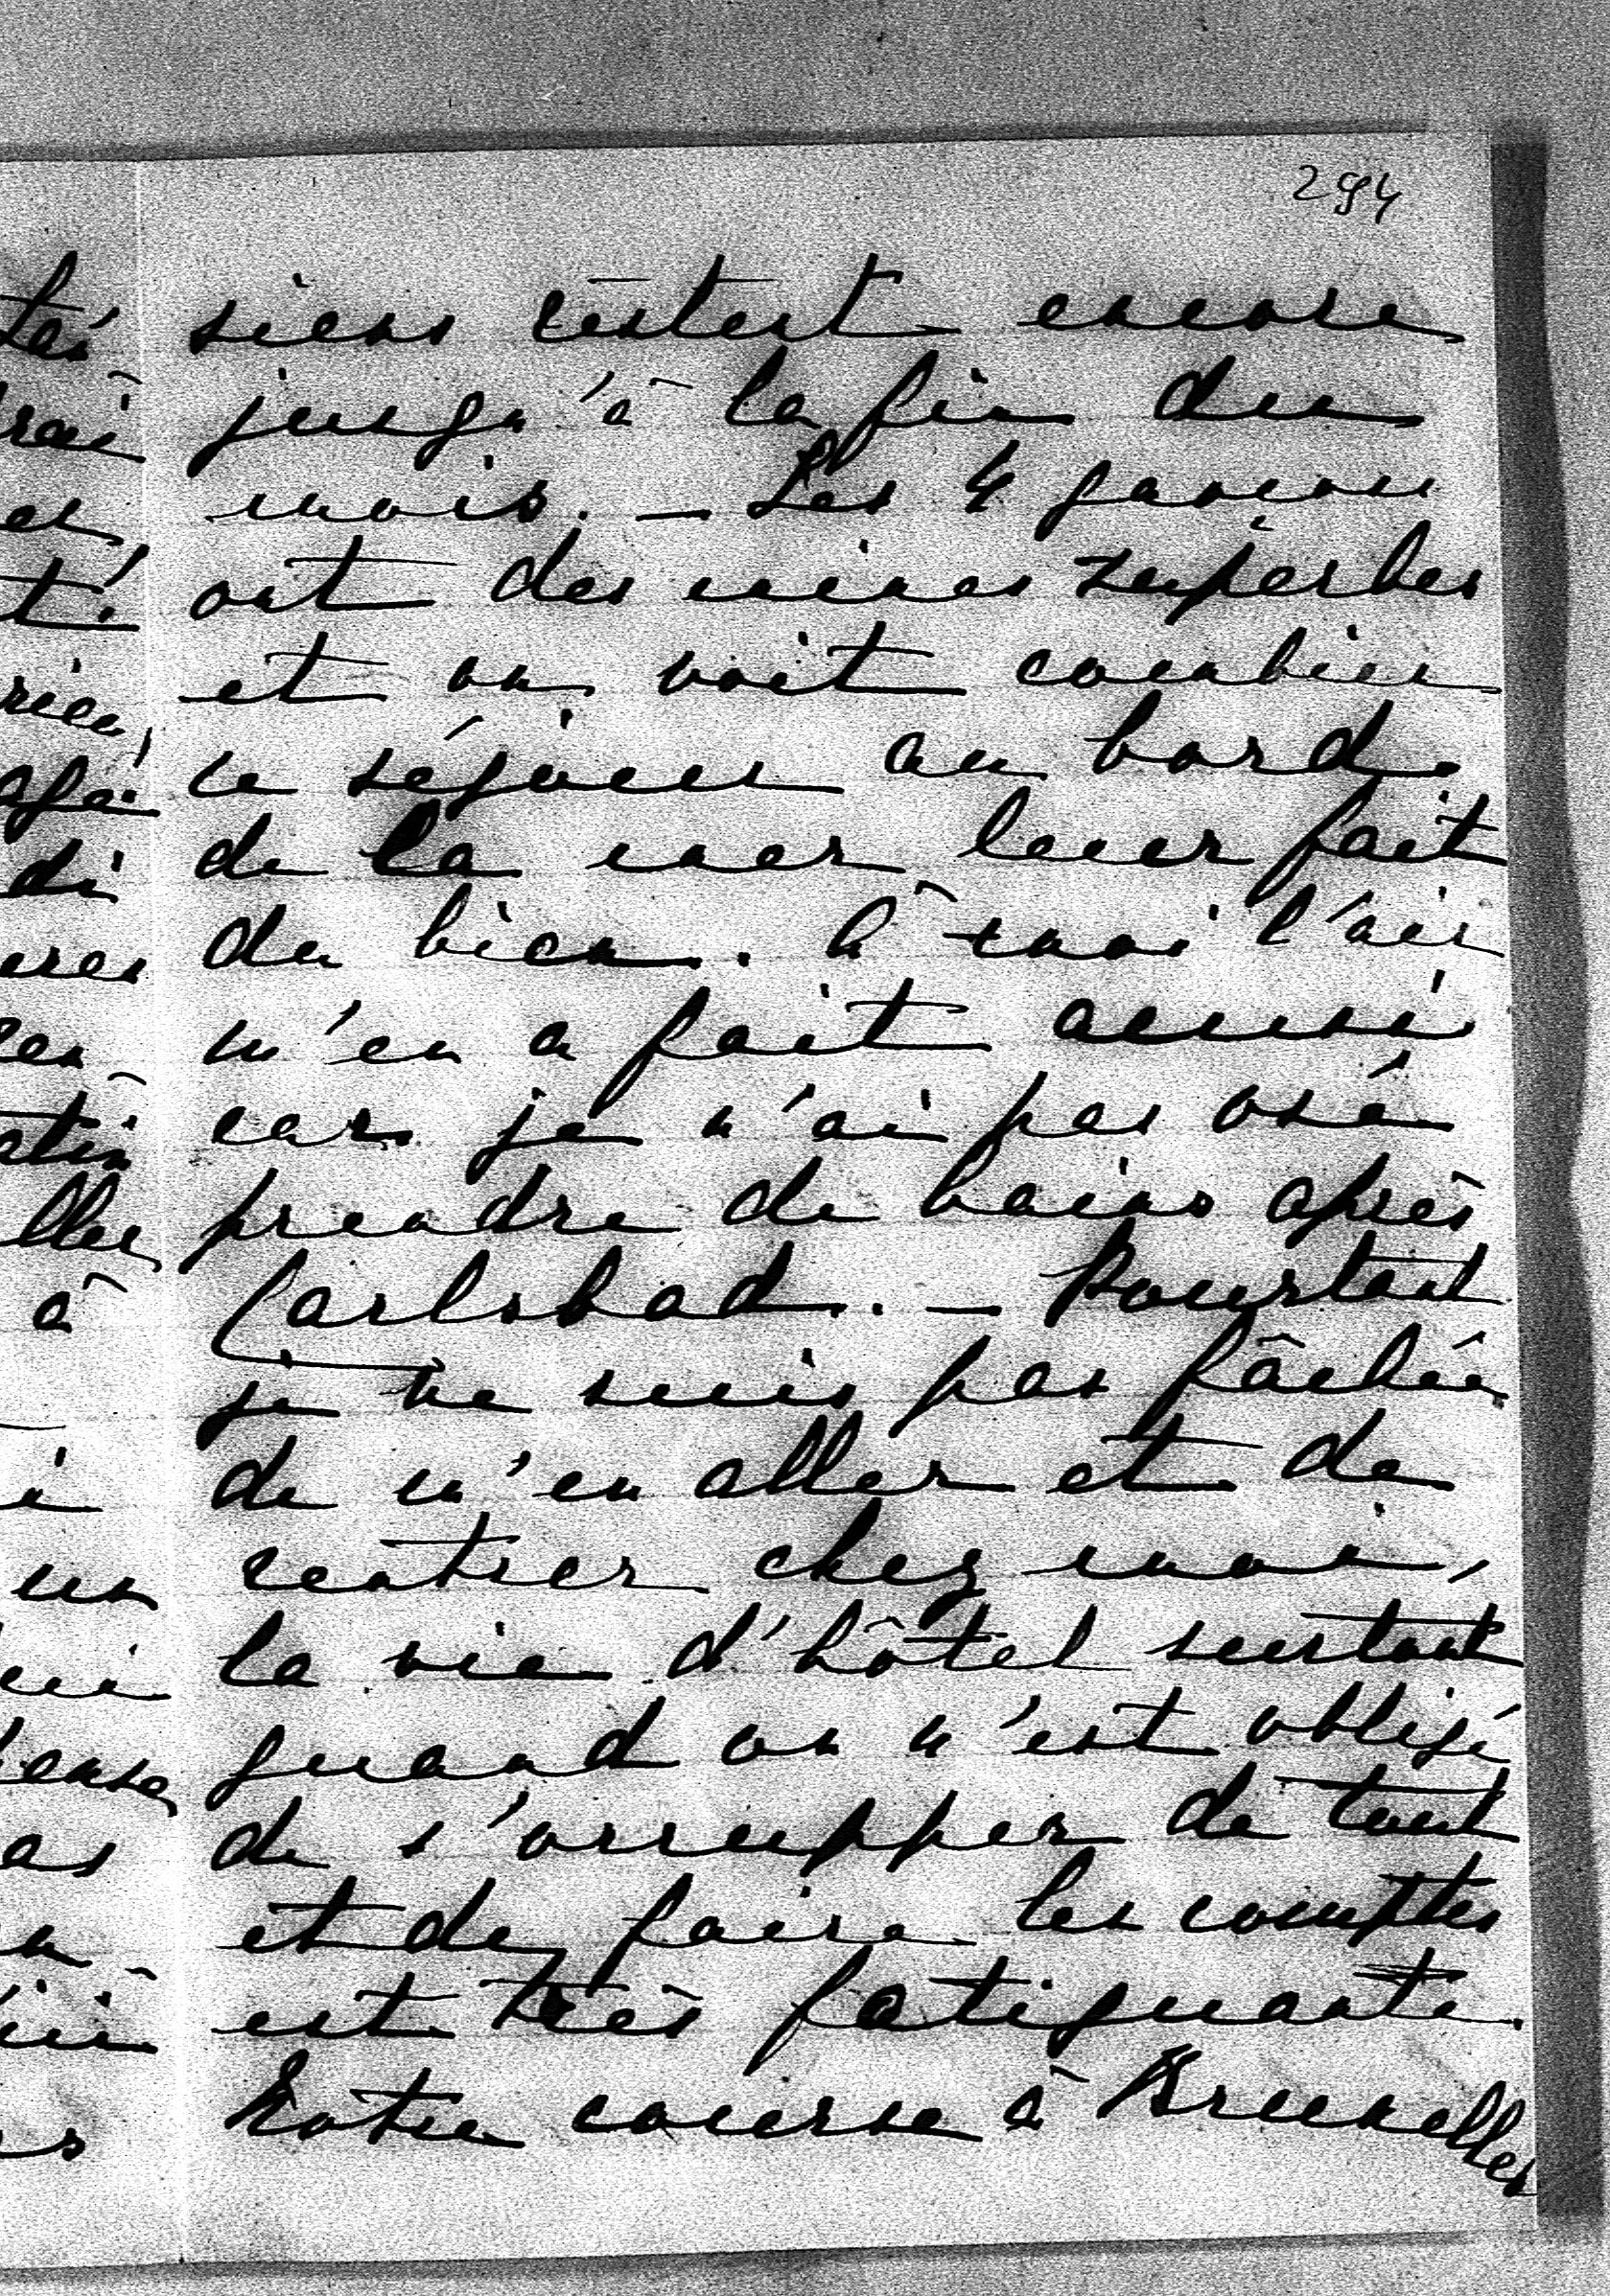 294
siens restent encore
jusqu'à la fin du
mois. — Les 4 garcons
ont des mines superbes
et on voit combien
ce séjour au bord
de la mer leur fait
du bien. A moi l'air
m'en a fait aussi
car je n'ai pas osé
prendre de bains après
Carlsbad. — Pourtant
je ne suis pas fâchée
de m'en aller et de
rentrer chez moi,
la vie d'hôtel surtout
quand on n'est obligé
de s'occupper de tout
et de faire les comptes
est très fatiguante.
Notre course à Bruxelles